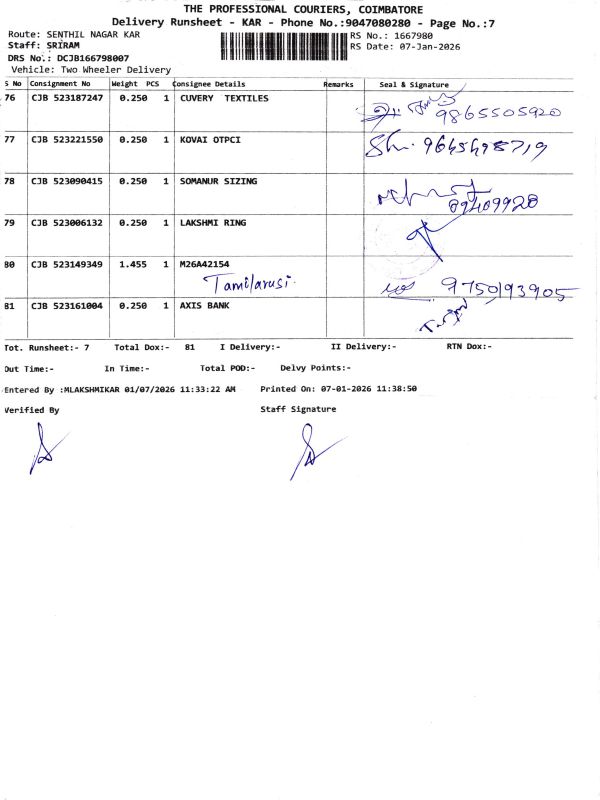 THE PROFESSIONAL COURIERS, COIMBATORE
Delivery Runsheet - KAR - Phone No.:9047080280 - Page No.:7
Route: SENTHIL NAGAR KAR
RS No.: 1667980
Staff: SRIRAM
RS Date: 07-Jan-2026
DRS No.: DCJB166798007
Vehicle: Two Wheeler Delivery
S No Consignment No Weight PCS Consignee Details Remarks Seal & Signature
76 CJB 523187247 0.250 1 CUVERY TEXTILES 9865505920
77 CJB 523221550 0.250 1 KOVAI OTPCI
78 CJB 523090415 0.250 1 SOMANUR SIZING
79 CJB 523006132 0.250 1 LAKSHMI RING
80 CJB 523149349 1.455 1 M26A42154
Tamilarusi. 9750193905
81 CJB 523161004 0.250 1 AXIS BANK
Tot. Runsheet:- 7 Total Dox:- 81 I Delivery:- II Delivery:- RTN Dox:-
Out Time:- In Time:- Total POD:- Delvy Points:-
Entered By :MLAKSHMIKAR 01/07/2026 11:33:22 AM Printed On: 07-01-2026 11:38:50
Verified By Staff Signature